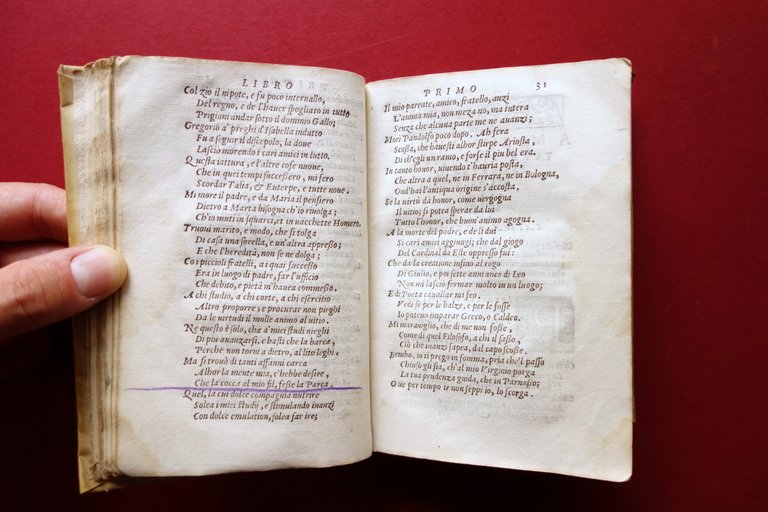 LIBRO
Col zio il nipote, e fu poco interuallo,
Del regno, e de l'hauer spogliato in tutto
Prigioni andar sotto il dominio Gallo;
Gregorio a' preghi d'Isabella indutto
Fu a seguir il discepolo, la doue
Lasciò morendo i cari amici in lutto.
Questa iattura, e l'altre cose nuoue,
Che in quei tempi successero, mi fero
Scordar Talia, & Euterpe, e tutte noue.
Mi more il padre, e da Maria il pensiero
Dietro a Marta bisogna ch'io riuolga;
Ch'io muti in squarci, et in vacchette Homero.
Truoui marito, e modo, che si tolga
Di casa una sorella, e un'altra appresso;
E che l'heredità, non se ne dolga;
Coi piccioli fratelli, ai quai successo
Era in luogo di padre, far l'ufficio
Che debito, e pietà m'hauea commesso.
A chi studio, a chi corte, a chi esercitio
Altro proporre; e procurar non pieghi
Da le uirtudi il molle animo al uitio.
Ne questo è solo, che a' miei studi nieghi
Di piu auanzarsi, e basti che la barca
Perche non torni a dietro, al lito leghi.
Ma si trouò di tanti affanni carca
Alhor la mente mia, c'hebbe desire,
Che la cocca al mio fil, fesse la Parca.
Quel, la cui dolce compagnia nutrire
Solea i miei studij, e stimulando inanzi
Con dolce emulation, solea far ire;
PRIMO 31
Il mio parente, amico, fratello, anzi
L'anima mia, non meza no, ma intera
Senza che alcuna parte me ne auanzi;
Morì Pandolfo poco dopo. Ah fera
Scossa, che hauesti alhor stirpe Ariosta,
Di ch'egli un ramo, e forse il piu bel era.
In tanto honor, uiuendo t'hauria posta,
Che altra a quel, ne in Ferrara, ne in Bologna,
Ond'hai l'antiqua origine s'accosta.
Se la uirtù dà honor, come uergogna
Il uitio; si potea sperar da lui
Tutto l'honor, che buon'animo agogna.
A la morte del padre, e de li dui
Si cari amici aggiungi; che dal giogo
Del Cardinal da Este oppresso fui:
Che da la creatione insino al rogo
Di Giulio, e poi sette anni anco di Leo
Non mi lasciò fermar molto in un luogo;
E di Poeta cauallar mi feo,
Vedi se per le balze, e per le fosse
Io poteuo imparar Greco, o Caldeo.
Mi marauiglio, che di me non fosse,
Come di quel Filosofo, a chi il sasso,
Ciò che inanzi sapea, dal capo scosse.
Bembo, io ti prego in somma, pria che'l passo
Chiuso gli sia, ch'al mio Virginio porga
La tua prudenza guida, che in Parnasso;
Oue per tempo ir non seppi io, lo scorga.